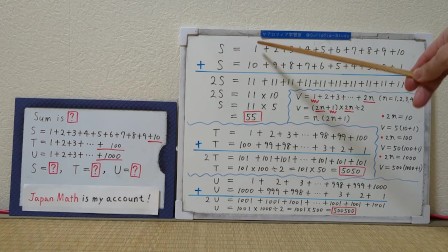 Sum is ?
S = 1+2+3+4+5+6+7+8+9+10
T = 1+2+3+ ⋯ + 100
U = 1+2+3+ ⋯ + 1000
S = ?, T = ?, U = ?
Japan Math is my account !
S = 1 + 2 + 3 + 4 + 5 + 6 + 7 + 8 + 9 + 10
+ S = 10 + 9 + 8 + 7 + 6 + 5 +
2S = 11 + 11 + 11 + 11 + 11 + 11 + 11 + 11 + 11 + 11
2S = 11 × 10
S = 11 × 5
= 55
V = 1+2+3+ ⋯ + 2n (n=1,2,3
V = (2n+1)×2n÷2
= n(2n+1)
• 2n = 10
V = 5(10+1)
• 2n = 100
V = 50(100+1)
• 2n = 1000
V = 500(1000+1)
T = 1 + 2 + 3 + ⋯ + 98 + 99 + 100
+ T = 100 + 99 + 98 + ⋯ + 3 + 2 + 1
2T = 101 + 101 + 101 + ⋯ + 101 + 101 + 101
T = 101 × 100 ÷ 2 = 101 × 50 = 5050
U = 1 + 2 + 3 + ⋯ + 998 + 999 + 1000
+ U = 1000 + 999 + 998 + ⋯ + 3 + 2 + 1
2U = 1001 + 1001 + 1001 + ⋯ + 1001 + 1001 + 1001
U = 1001 × 1000 ÷ 2 = 1001 × 500 = 500500